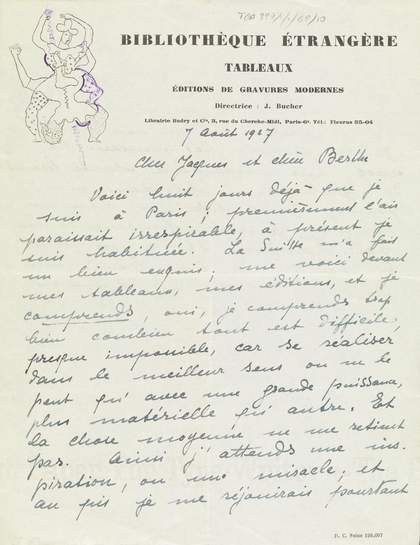 TGA 999/1/1/69/10
BIBLIOTHÈQUE ÉTRANGÈRE
TABLEAUX
ÉDITIONS DE GRAVURES MODERNES
Directrice : J. Bucher
Librairie Budry et Cie, 3, rue du Cherche-Midi, Paris-6e. Tél: Fleurus 55-04
7 Août 1927
Cher Jacques et chère Berthe
Voici huit jours déjà que je
suis à Paris ; premièrement l'air
paraissait irrespirable, à présent je
suis habituée. La Suisse m'a fait
un bien exquis ; me voici devant
mes tableaux, mes éditions, et je
comprends, oui, je comprends trop
bien combien tout est difficile,
presque impossible, car se réaliser
dans le meilleur sens on ne le
peut qu'avec une grande puissance,
plus matérielle qu'autre. Et
la chose moyenne ne me retient
pas. Ainsi j'attends une ins-
piration, ou un miracle ; et
au pis je me réjouirais pourtant
R. C. Seine 250.097